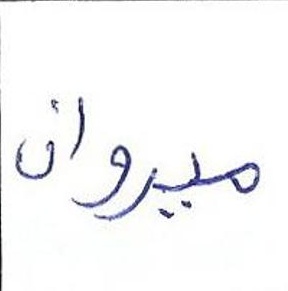 میروان